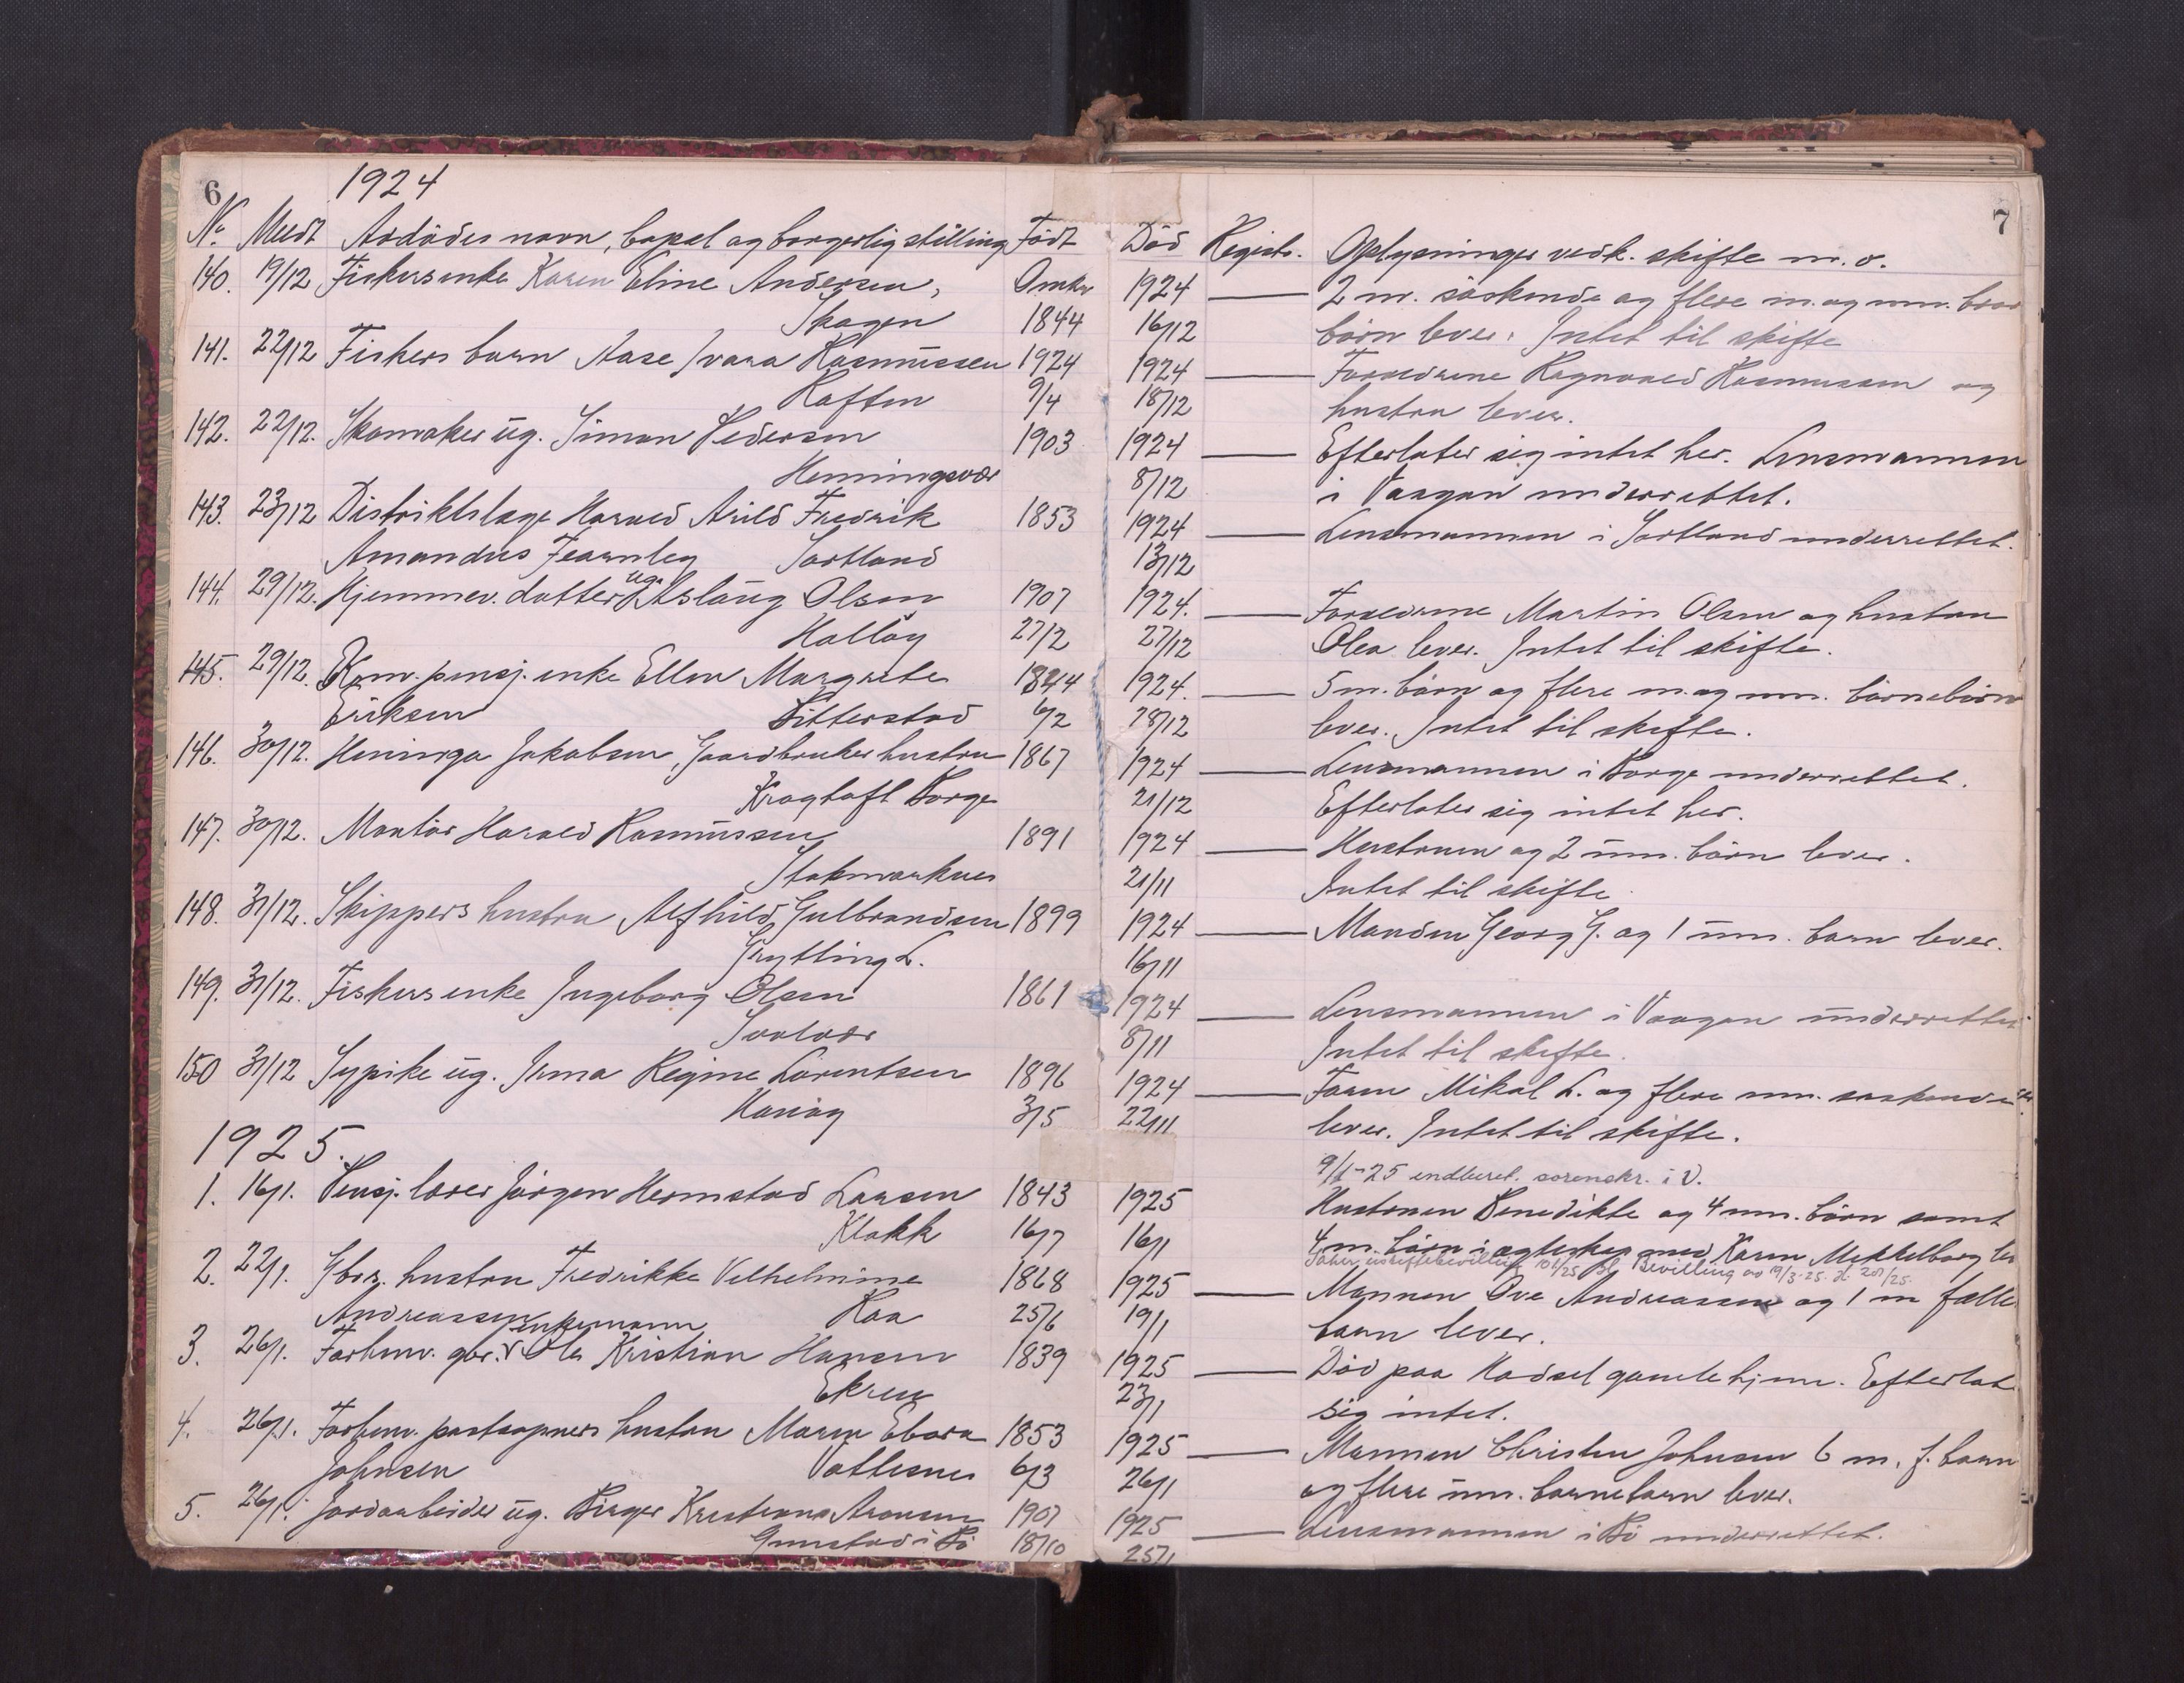 6
1924
No Meldt Avdödes navn, bopæl og borgerlig stilling Født
140. 19/12 Fiskersenke Karen Eline Andersen, Omkr
Skagen 1844
141. 22/12 Fiskers barn Aase Ivara Rasmussen 1924
Raften 9/4
142. 22/12. Skomaker ug. Simon Pedersen 1903
Henningsvær
143. 23/12 Distriktslæge Harald Arild Fredrik 1853
Amandus Fearnley Sortland
144. 29/12. Hjemmev. datter ug. Aslaug Olsen 1907
Melbo 27/2
145. 29/12. Kom. pensj. enke Ellen Margrete 1844
Eriksen Fitterstad 6/2
146. 30/12. Heminga Jakobsen, Gaardbruker hustru 1867
Kragtoft Borge
147. 30/12. Montör Harald Rasmussen 1891
Stokmarknes
148. 31/12. Skippers hustru Alfhild Gulbrandsen 1899
Grytting L.
149. 31/12. Fiskersenke Ingeborg Olsen 1861
Svolvær
150 31/12 Sypike ug. Irma Regine Lorentsen 1896
Hanöy 3/5
1925.
1. 16/1. Pensj. lærer Jörgen Hermstad Larsen 1843
Klakk 16/7
2. 22/1. Gbr. hustru Fredrikke Vilhelmine 1868
Andreassen Raa 25/6
3. 26/1. Forhenv. gbr. enkemann Ole Kristian Hansen 1839
Ekren
4. 26/1. Forhenv. postaapners hustru Maren Ebora 1853
Johnsen Vottesnes 6/3
5. 26/1. Jordarbeider ug. Birger Kristiano Aronsen 1907
Gunstad i Bö 18/10
7
Död Registr. Oplysninger vedk. skifte m. v.
1924 2 m. söskende og flere m. og um. bror
16/12 börn lever. Intet til skifte
1924 Forældrene Ragnvald Rasmussen og
18/12 hustru lever.
1924 Efterlater sig intet her. Lensmannen
8/12 i Vaagan underrettet.
1924 Lensmannen i Sortland underrettet.
13/12
1924. Forældrene Martin Olsen og hustru
27/12 Olea lever. Intet til skifte.
1924. 5 m. börn og flere m. og um. börnebörn
28/12 lever. Intet til skifte.
1924 Lensmannen i Borge underrettet.
21/12 Efterlater sig intet her.
1924 Hustruen og 2 um. börn lever.
21/11 Intet til skifte.
1924 Manden Georg G. og 1 um. barn lever.
16/11
1924 Lensmannen i Vaagan underrettet
8/11 Intet til skifte.
1924 Faren Mikal L. og flere um. söskende
22/11 lever. Intet til skifte.
9/1-25 indberet. sorenskr. i V.
1925 Hustruen Benedikte og 4 um. börn samt
16/1 4 m. börn i egteskap med Karen Mekkelborg lev
Söker uskiftebevilling 101/25 Bevilling av 19/3-25. jl. 201/25.
1925 Mannen Ove Andreassen og 1 m fælles
19/1 barn lever.
1925 Död paa Hadsel gamlehjem. Efterlot
23/1 sig intet.
1925 Mannen Christen Johnsen 6 m. f. barn
26/1 og flere um. barnebarn lever.
1925 Lensmannen i Bö underrettet.
25/1